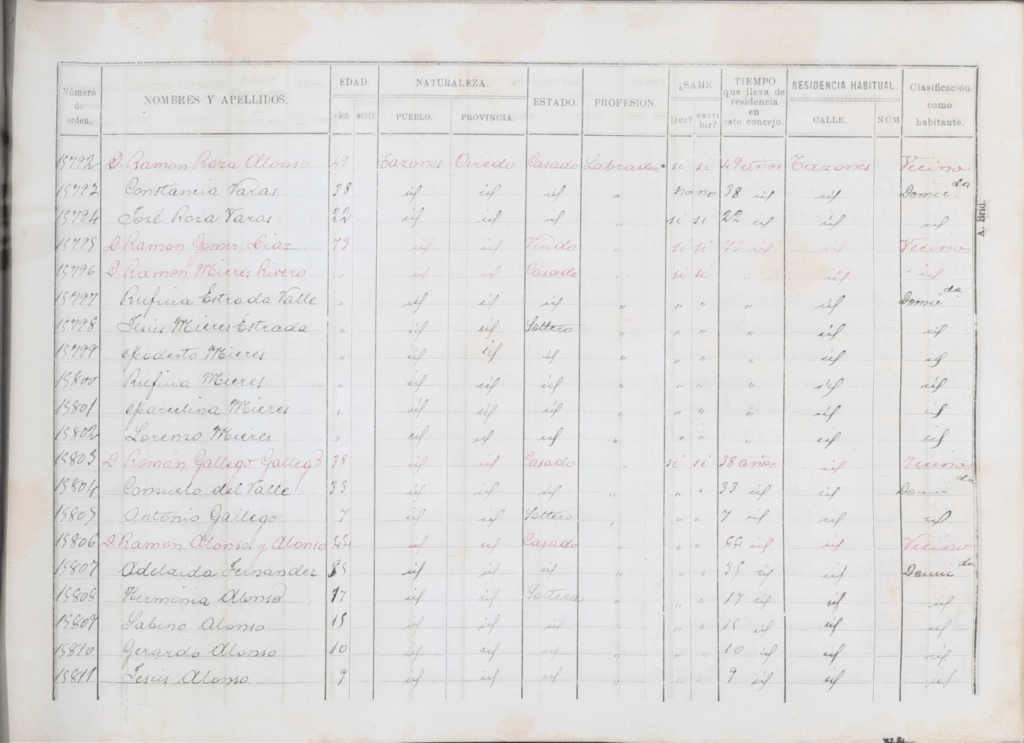 Número de orden. NOMBRES Y APELLIDOS. EDAD. NATURALEZA. PUEBLO. PROVINCIA. ESTADO. PROFESION ¿SABE leer? escribir? TIEMPO que lleva de residencia en este concejo. RESIDENCIA HABITUAL. CALLE. NÚM Clasificación como habitante.
15792 D. Ramon Roza Alonso 49 Tazones Oviedo Casado Labrador si si 49 años Tazones Vecino
15793 Constancia Varas 38 id id id " no no 38 id id Domicda
15794 José Roza Varas 22 id id id " si si 22 id id id
15795 D. Ramon Gomez Diaz 73 id id Viudo " si si 73 id id Vecino
15796 D. Ramon Mieres Rivero " id id Casado " si si " id id
15797 Rufina Estrada Valle " id id id " " " " id Domicda
15798 Jesús Mieres Estrada " id id Soltero " " " " id id
15799 Modesto Mieres " id id id " " " " id id
15800 Rufina Mieres " id id id " " " " id id
15801 Marcelina Mieres " id id id " " " " id id
15802 Lorenzo Mieres " id id id " " " " id id
15803 D. Román Gallego Gallego 38 id id Casado " si si 38 años id Vecino
15804 Consuelo del Valle 33 id id id " " " 33 id id Domicda
15805 Antonio Gallego 7 id id Soltero " " " 7 id id id
15806 D. Ramon Alonso y Alonso 44 id id Casado " " " 44 id id Vecino
15807 Adelaida Fernandez id id id " " " 35 id id Domicda
15808 Herminia Alonso 17 id id Soltera " " " 17 id id id
15809 Sabino Alonso 15 id id id " " " 15 id id id
15810 Gerardo Alonso 10 id id id " " " 10 id id id
15811 Jesus Alonso 9 id id id " " " 9 id id id
A. Brid.